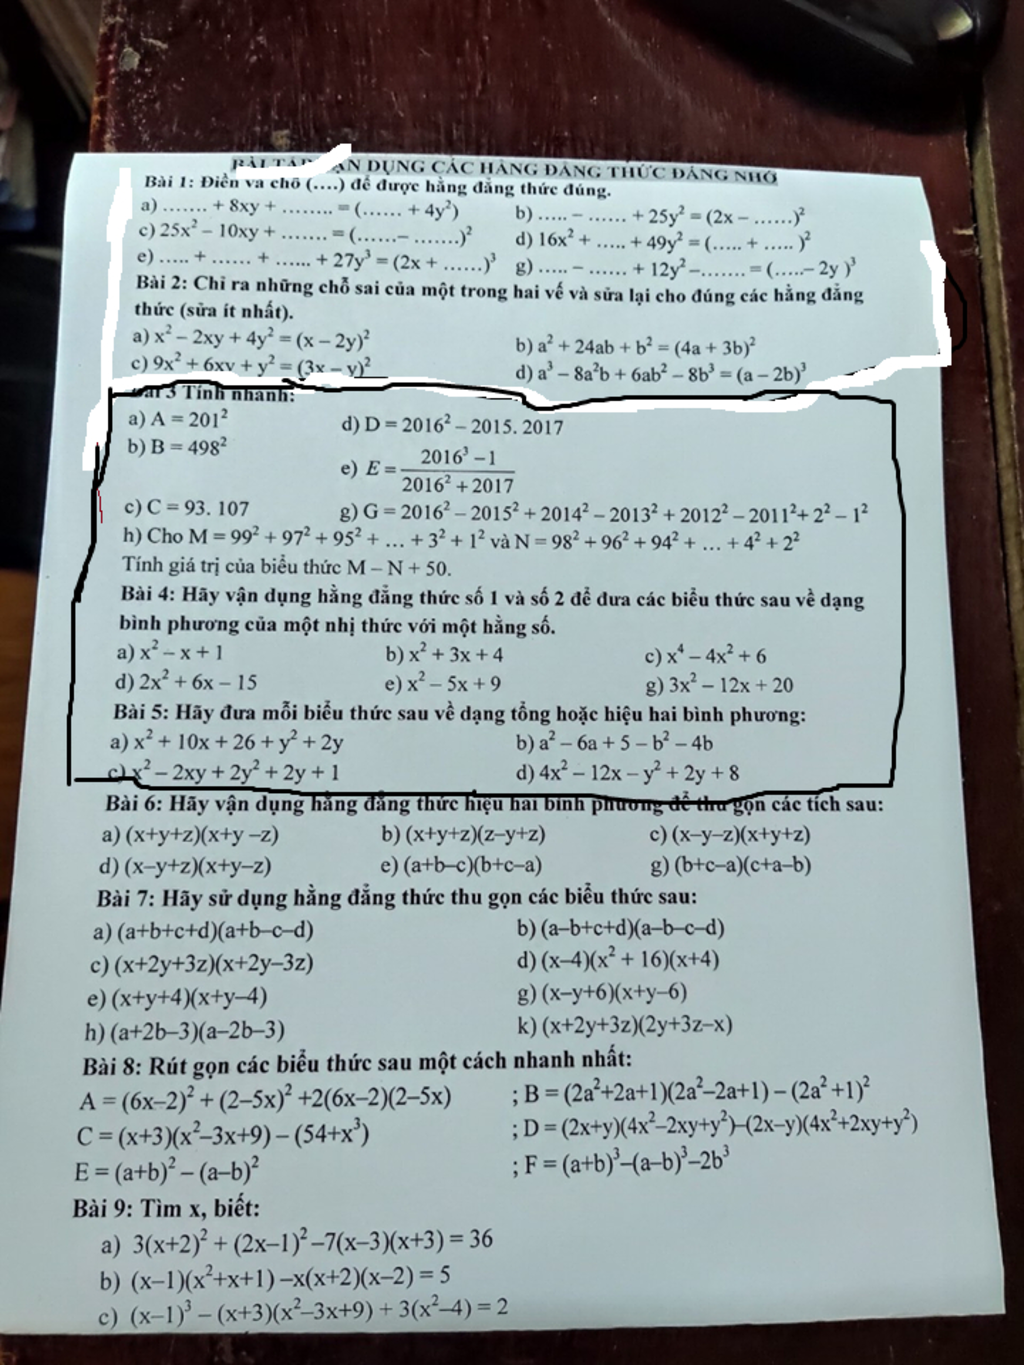 DỤNG CÁC HẰNG ĐẲNG THỨC ĐÁNG NHỚ
Bài 1: Điền và chỗ (....) để được hằng đẳng thức đúng.
a) ....... + 8xy + ........ = (...... + 4y²)
b) ..... – ...... + 25y² = (2x – ......)²
c) 25x² – 10xy + ....... = (......– .......)²
d) 16x² + ..... + 49y² = (..... + ..... )²
e) ..... + ...... + ...... + 27y³ = (2x + ......)³
g) ..... – ...... + 12y² –....... = (.....– 2y )³
Bài 2: Chỉ ra những chỗ sai của một trong hai vế và sửa lại cho đúng các hằng đẳng
thức (sửa ít nhất).
a) x² – 2xy + 4y² = (x – 2y)²
b) a² + 24ab + b² = (4a + 3b)²
c) 9x² + 6xy + y² = (3x – y)²
d) a³ – 8a²b + 6ab² – 8b³ = (a – 2b)³
3 Tính nhanh:
a) A = 201²
d) D = 2016² – 2015. 2017
b) B = 498²
e) E = (2016³ – 1)/(2016² + 2017)
c) C = 93. 107
g) G = 2016² – 2015² + 2014² – 2013² + 2012² – 2011²+ 2² – 1²
h) Cho M = 99² + 97² + 95² + ... + 3² + 1² và N = 98² + 96² + 94² + ... + 4² + 2²
Tính giá trị của biểu thức M – N + 50.
Bài 4: Hãy vận dụng hằng đẳng thức số 1 và số 2 để đưa các biểu thức sau về dạng
bình phương của một nhị thức với một hằng số.
a) x² – x + 1
b) x² + 3x + 4
c) x⁴ – 4x² + 6
d) 2x² + 6x – 15
e) x² – 5x + 9
g) 3x² – 12x + 20
Bài 5: Hãy đưa mỗi biểu thức sau về dạng tổng hoặc hiệu hai bình phương:
a) x² + 10x + 26 + y² + 2y
b) a² – 6a + 5 – b² – 4b
c) x² – 2xy + 2y² + 2y + 1
d) 4x² – 12x – y² + 2y + 8
Bài 6: Hãy vận dụng hằng đẳng thức hiệu hai bình phương để thu gọn các tích sau:
a) (x+y+z)(x+y –z)
b) (x+y+z)(z–y+z)
c) (x–y–z)(x+y+z)
d) (x–y+z)(x+y–z)
e) (a+b–c)(b+c–a)
g) (b+c–a)(c+a–b)
Bài 7: Hãy sử dụng hằng đẳng thức thu gọn các biểu thức sau:
a) (a+b+c+d)(a+b–c–d)
b) (a–b+c+d)(a–b–c–d)
c) (x+2y+3z)(x+2y–3z)
d) (x–4)(x² + 16)(x+4)
e) (x+y+4)(x+y–4)
g) (x–y+6)(x+y–6)
h) (a+2b–3)(a–2b–3)
k) (x+2y+3z)(2y+3z–x)
Bài 8: Rút gọn các biểu thức sau một cách nhanh nhất:
A = (6x–2)² + (2–5x)² +2(6x–2)(2–5x)
; B = (2a²+2a+1)(2a²–2a+1) – (2a² +1)²
C = (x+3)(x²–3x+9) – (54+x³)
; D = (2x+y)(4x²–2xy+y²)–(2x–y)(4x²+2xy+y²)
E = (a+b)² – (a–b)²
; F = (a+b)³–(a–b)³–2b³
Bài 9: Tìm x, biết:
a) 3(x+2)² + (2x–1)² –7(x–3)(x+3) = 36
b) (x–1)(x²+x+1) –x(x+2)(x–2) = 5
c) (x–1)³ – (x+3)(x²–3x+9) + 3(x²–4) = 2